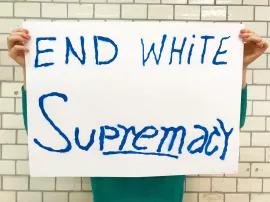 END WHiTE
SupremacY